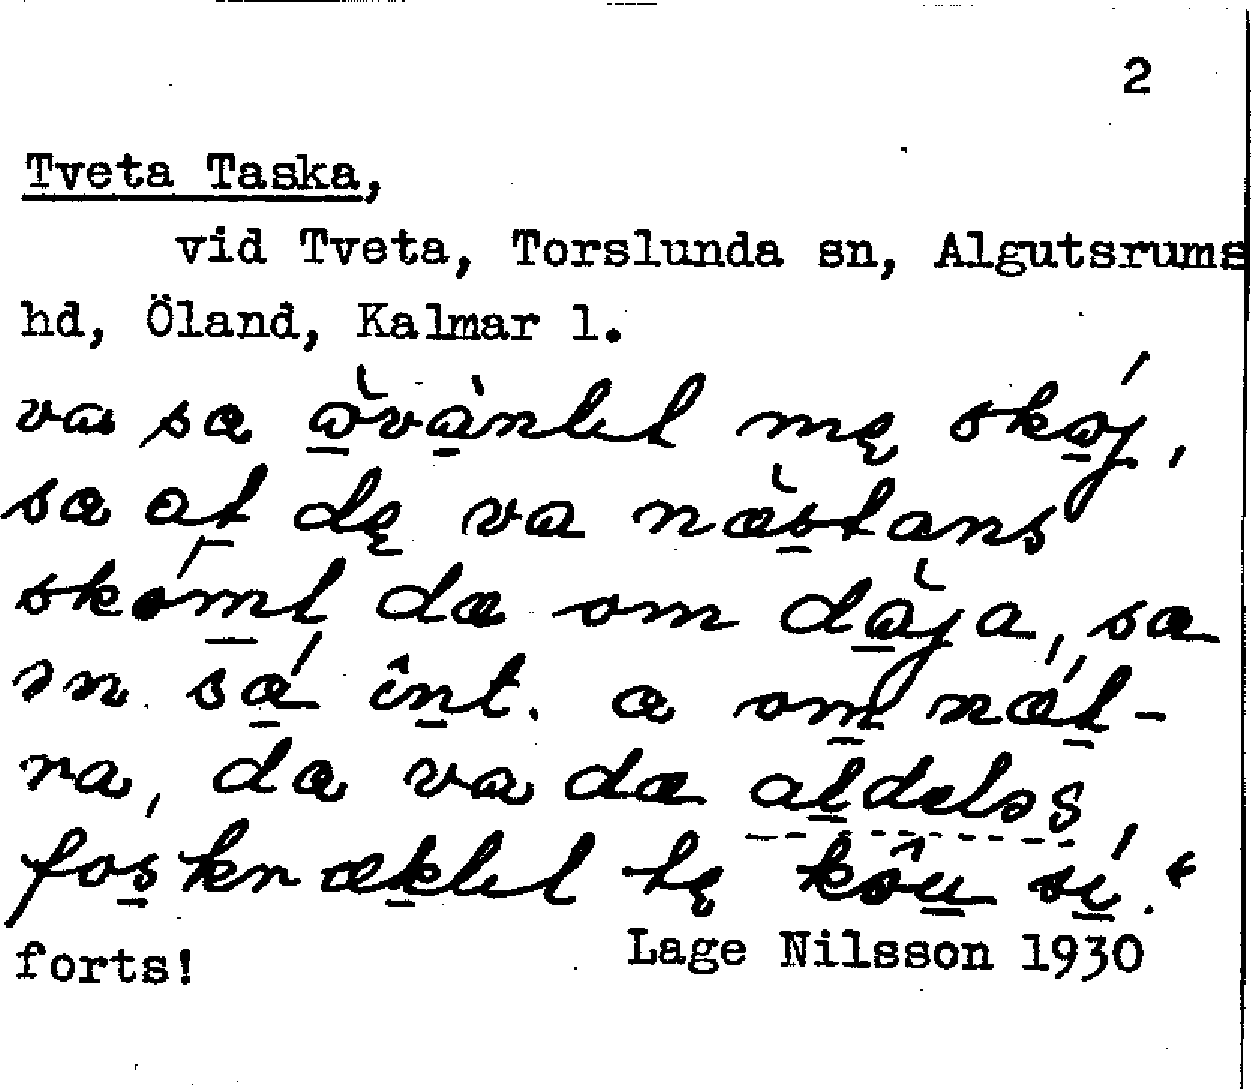 2
Tveta Taska,
vid Tveta, Torslunda sn, Algutsrums
hd, Öland, Kalmar l.
va sa ɷ̀vànlɩt mę skɷ́j,
sa at dę va næ̀stans
skómt dæ om dɷ̀ja, sa
ən sǽ înt. a om nǽt-
ra, da va dæ aldeləs
foṣknæklɩt tę kôu sí."
forts! Lage Nilsson 1930